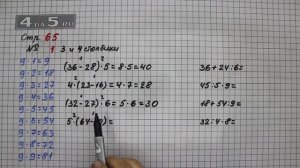 4 5.RU
Стр 65
№ 1 3 и 4 столбики
9·1=9
9·2=18
9·3=27
9·4=36
9·5=45
9·6=54
9·7=63
9·8=72
9·9=81
(36-28)·5=8·5=40
4·(23-16)=4·7=28
(32-27)·6=5·6=30
5·(64-
36+24:6=
45:5·9=
18+54:9=
32:4·8=